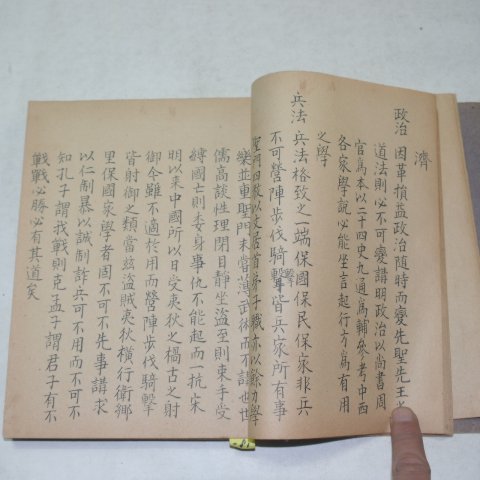 濟
政治 因革損益政治隨時而變先聖先王
道法則必不可變講明政治以尚書周
官爲本以二十四史九通爲輔參考中西
各家學說必能坐言起行方爲有用
之學
兵法 兵法格致之一端保國保民保家非兵
不可營陣步伐騎擊皆兵家所有事
聖門四教以文居首弟子職亦以餘力學
樂並重聖門未
儒高談性理閉目靜坐盜至則束手受
縛國亡則委身事仇不能起而一抗宋
明以來中國所以日受夷狄之禍古之射
御今雖不適於用而營陣步伐騎擊
皆射御之類當茲盜賊夷狄橫行衛鄉
里保國家學者固不可不先事講求
以仁制暴以誠制詐兵可不用而不可不
知孔子謂我戰則克孟子謂君子有不
戰戰必勝必有其道矣